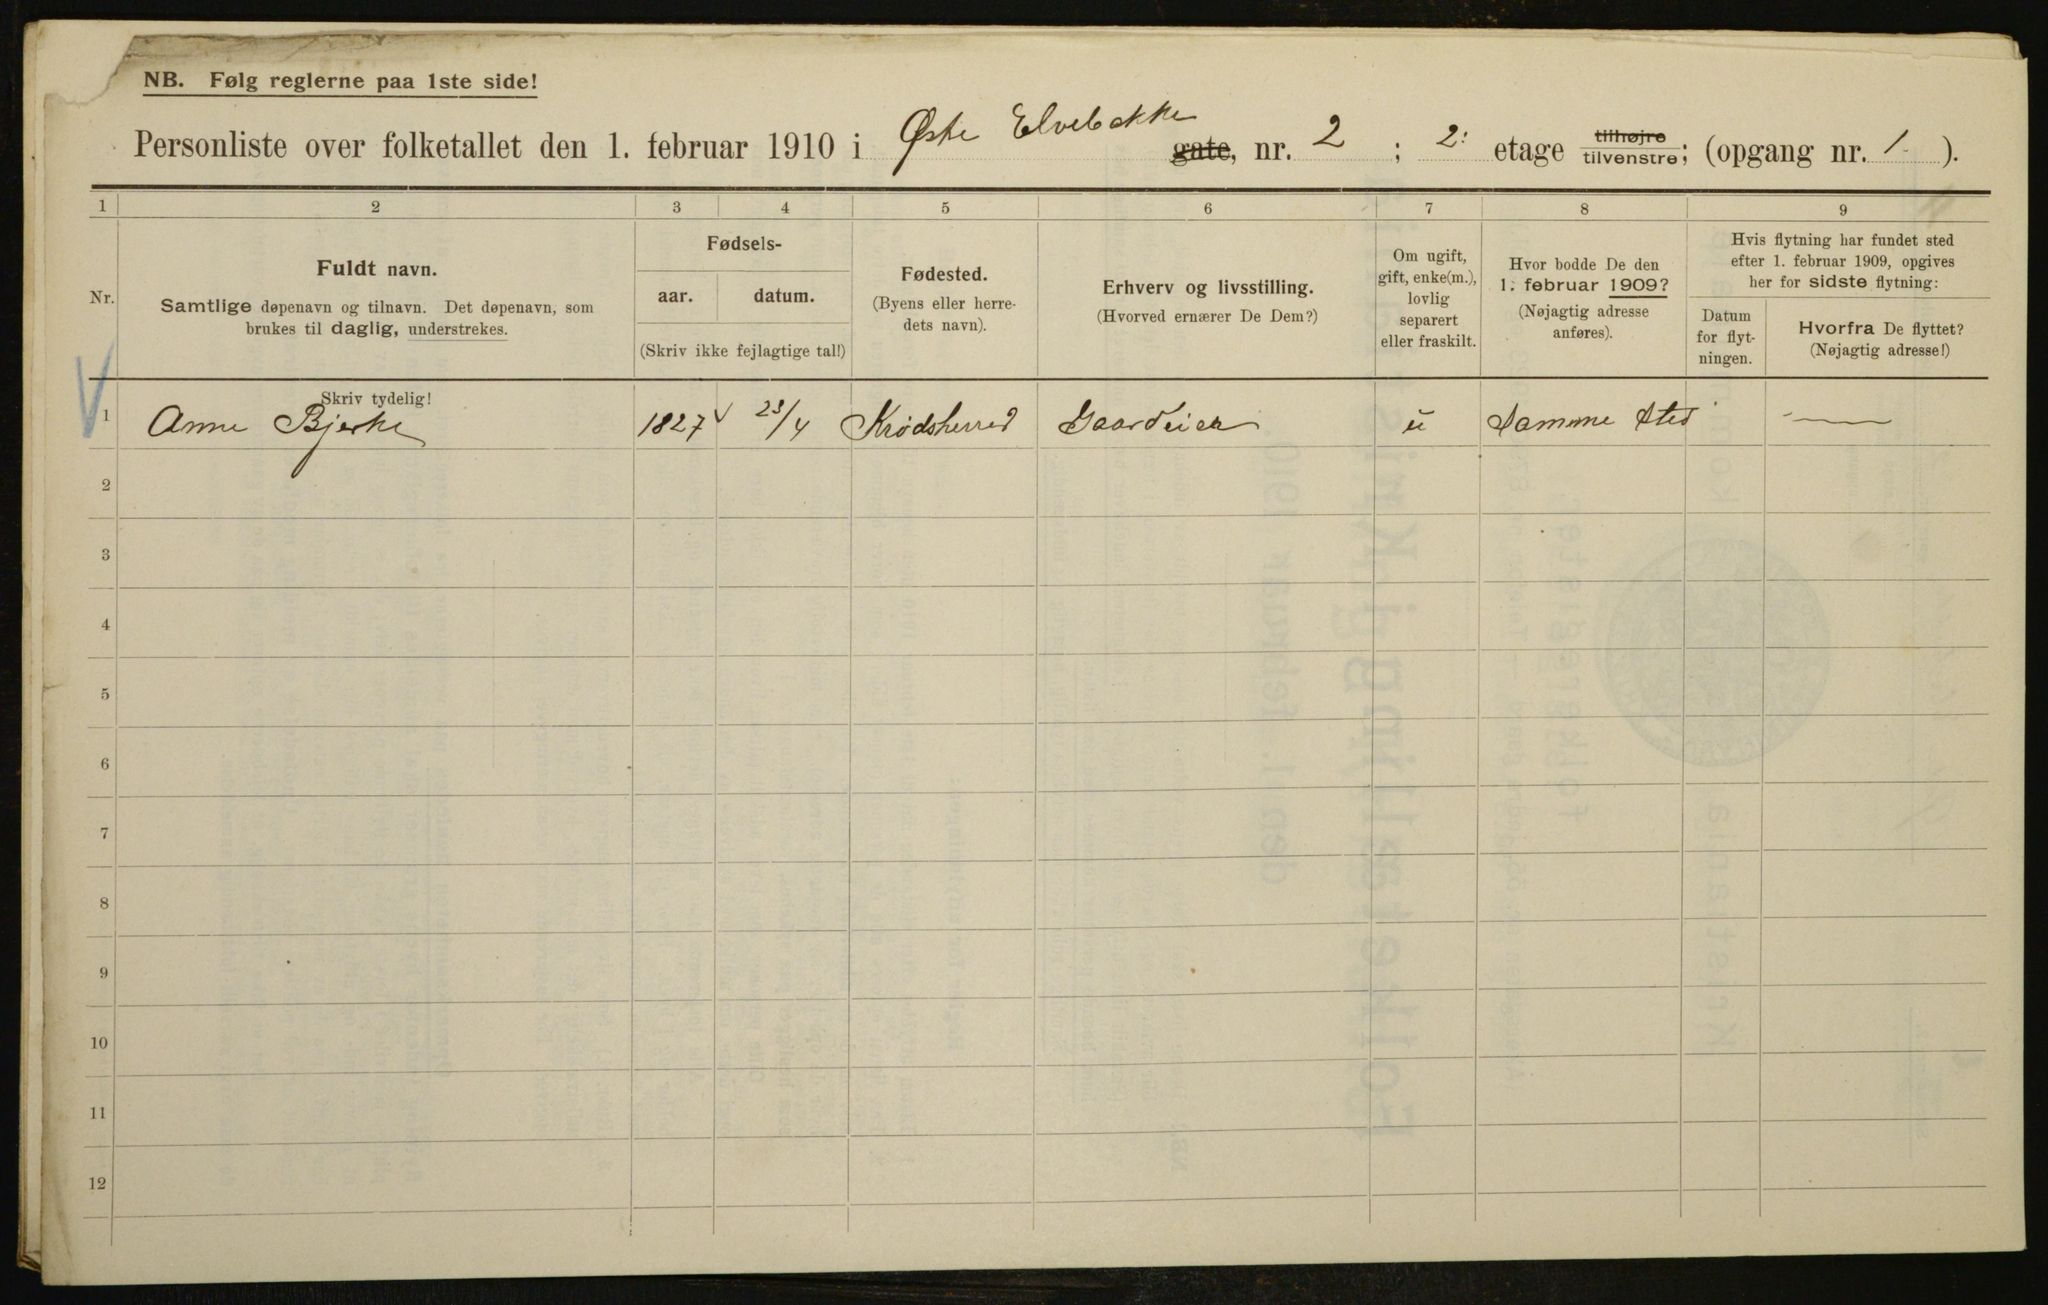 NB. Følg reglerne paa 1ste side!
Personliste over folketallet den 1. februar 1910 i Øste Elvebakke gate, nr. 2 ; 2: etage tilhøjre tilvenstre; (opgang nr. 1 ).
1 2 3 4 5 6 7 8 9
Nr.
Fuldt navn.
Samtlige døpenavn og tilnavn. Det døpenavn, som
brukes til daglig, understrekes.
Fødsels-
aar. datum.
(Skriv ikke fejlagtige tal!)
Fødested.
(Byens eller herre-
dets navn).
Erhverv og livsstilling.
(Hvorved ernærer De Dem?)
Om ugift,
gift, enke(m.),
lovlig
separert
eller fraskilt.
Hvor bodde De den
1. februar 1909?
(Nøjagtig adresse
anføres).
Hvis flytning har fundet sted
efter 1. februar 1909, opgives
her for sidste flytning:
Datum
for flyt-
ningen.
Hvorfra De flyttet?
(Nøjagtig adresse!)
Skriv tydelig!
1 Anne Bjerke 1827 23/4 Krødsherred Gaardeier u Samme Sted —
2
3
4
5
6
7
8
9
10
11
12